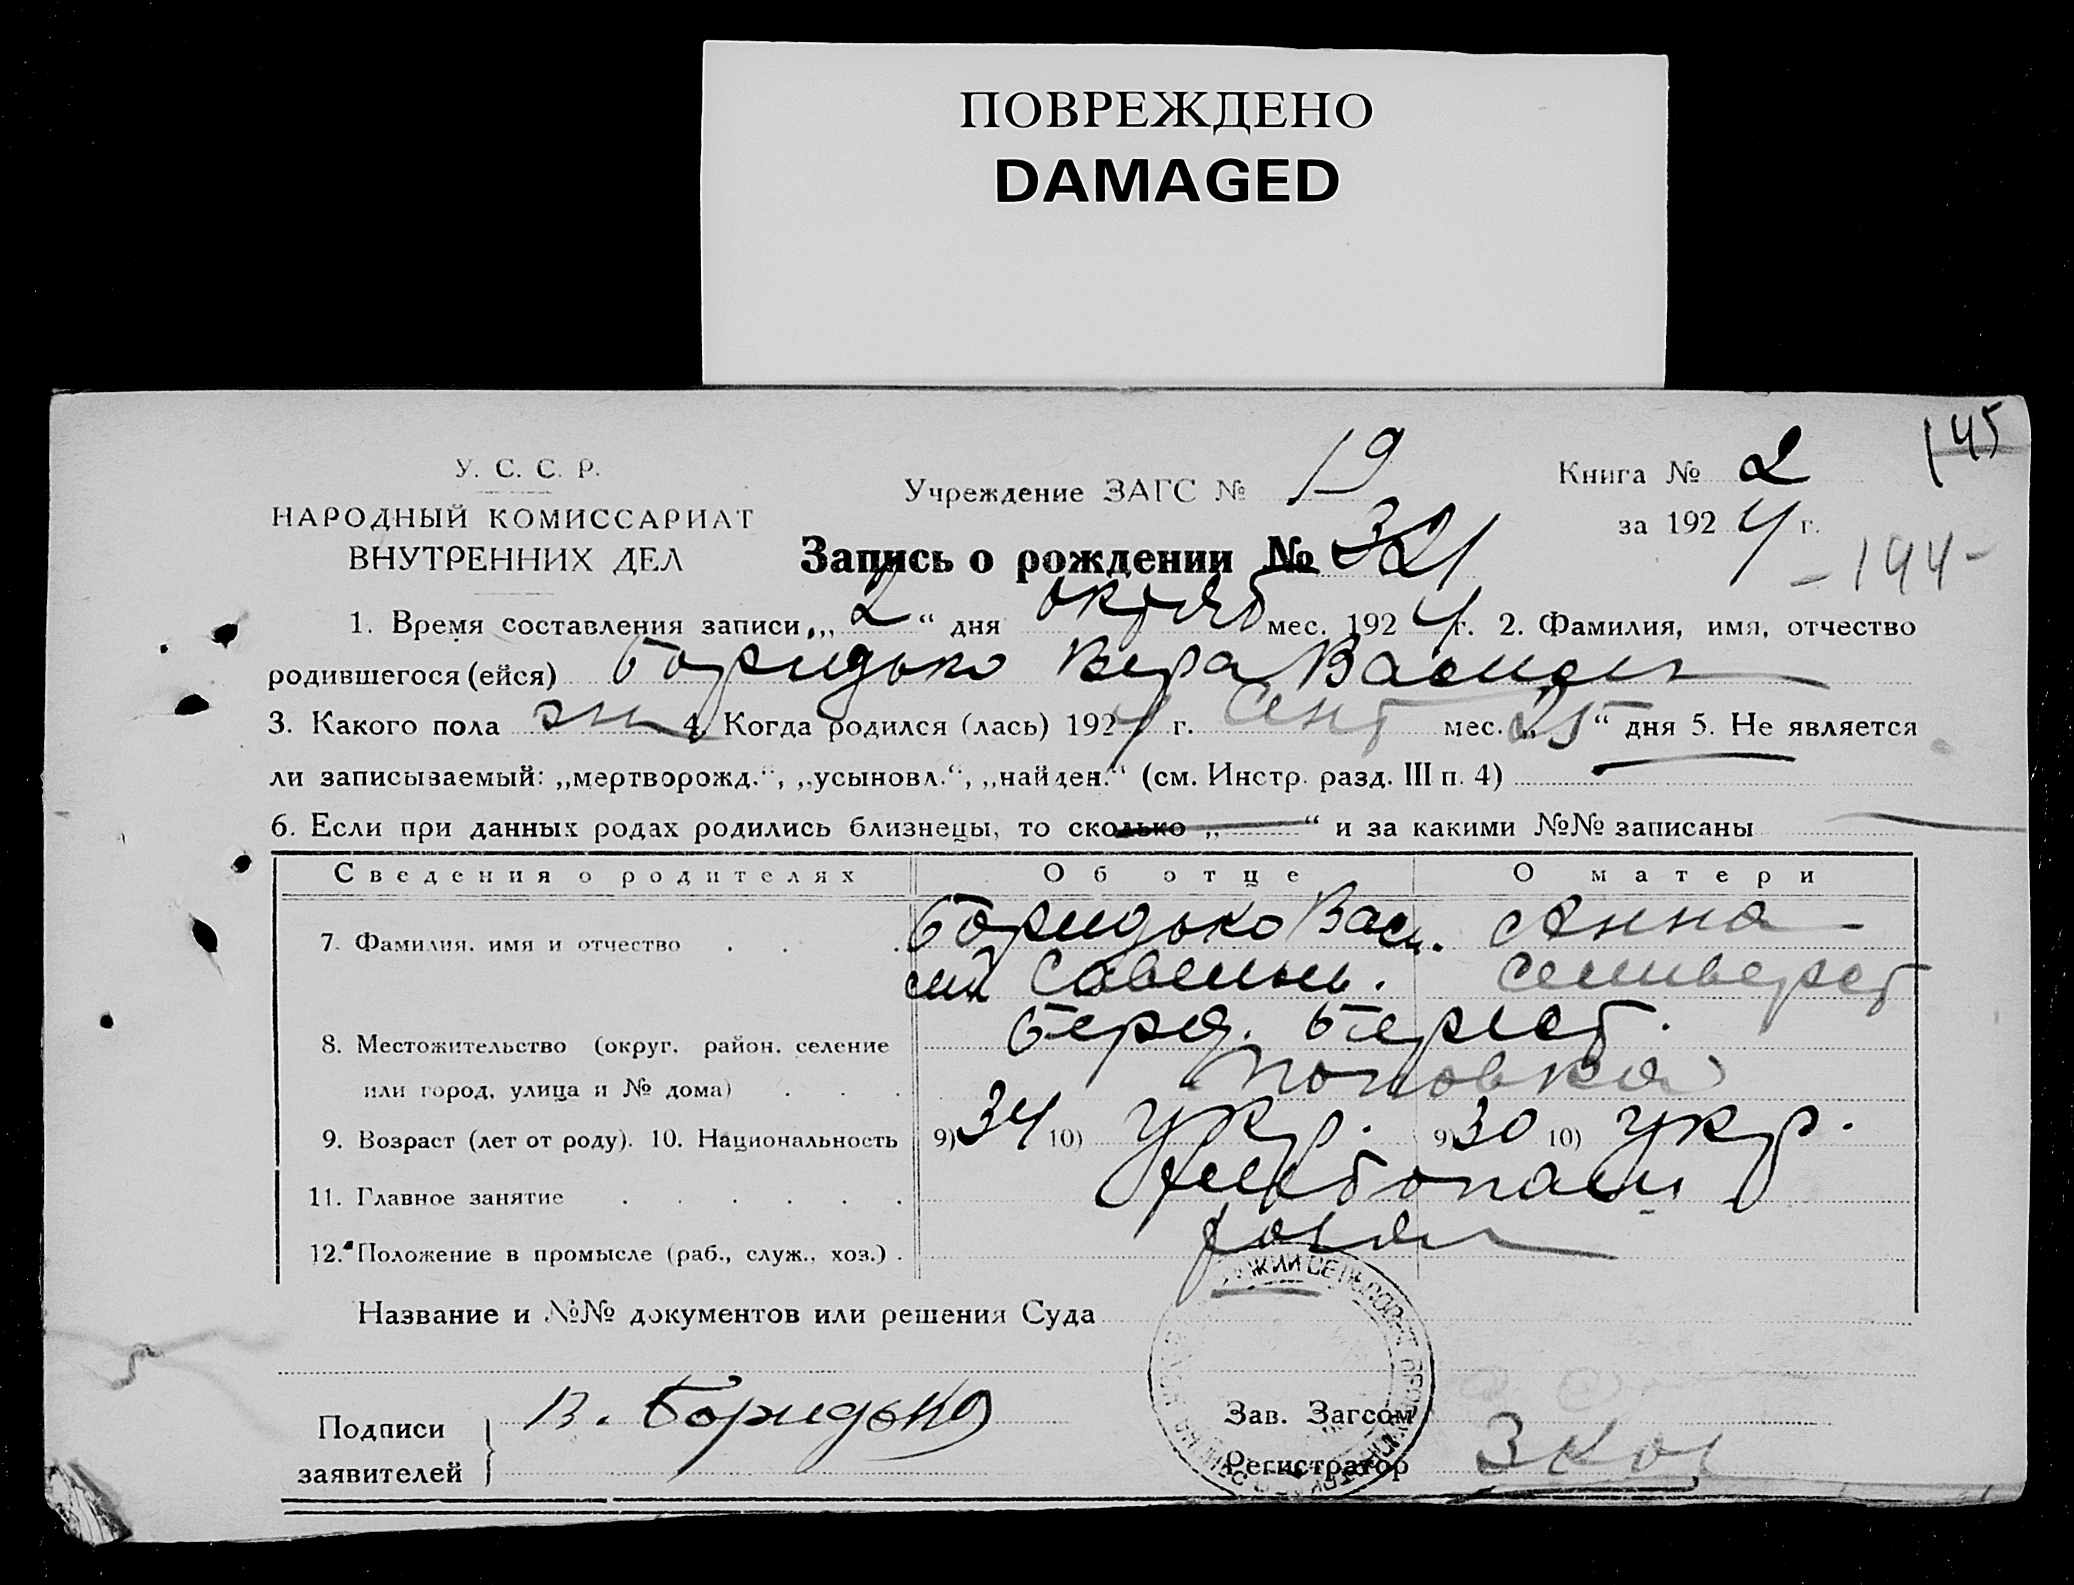 ПОВРЕЖДЕНО
DAMAGED
145
У. С. С. Р.
НАРОДНЫЙ КОМИССАРИАТ
ВНУТРЕННИХ ДЕЛ
Учреждение ЗАГС № 19
Книга № 2
за 1924 г.
Запись о рождении № 321
-194-
1. Время составления записи „2“ дня октяб мес. 1924 г. 2. Фамилия, имя, отчество
родившегося (ейся) Боридько Вера Васил
3. Какого пола жн 4. Когда родился (лась) 1924 г. сент мес. „25“ дня 5. Не является
ли записываемый: „мертворожд.“, „усыновл.“, „найден.“ (см. Инстр. разд. III п. 4)
6. Если при данных родах родились близнецы, то сколько „—“ и за какими №№ записаны —
Сведения о родителях Об отце О матери
7. Фамилия, имя и отчество Боридько Васи. Анна
сий Савельь. Селиверст
8. Местожительство (округ, район, селение Берд. Берест.
или город, улица и № дома) Поповка
9. Возраст (лет от роду). 10. Национальность 9) 34 10) Укр. 9) 30 10) Укр.
11. Главное занятие хлебопаш
12. Положение в промысле (раб., служ., хоз.)
Название и №№ документов или решения Суда
Подписи
заявителей
В. Боридько
Зав. Загсом
Регистратор